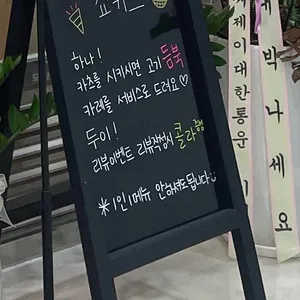 하나!
카츠를 시키시면 고기 듬뿍
카레를 서비스로 드려요♡
두이!
리뷰이벤트 리뷰작성시 콜라형
*1인1메뉴 안하셔도됩니다
이대한통운
대박나세요